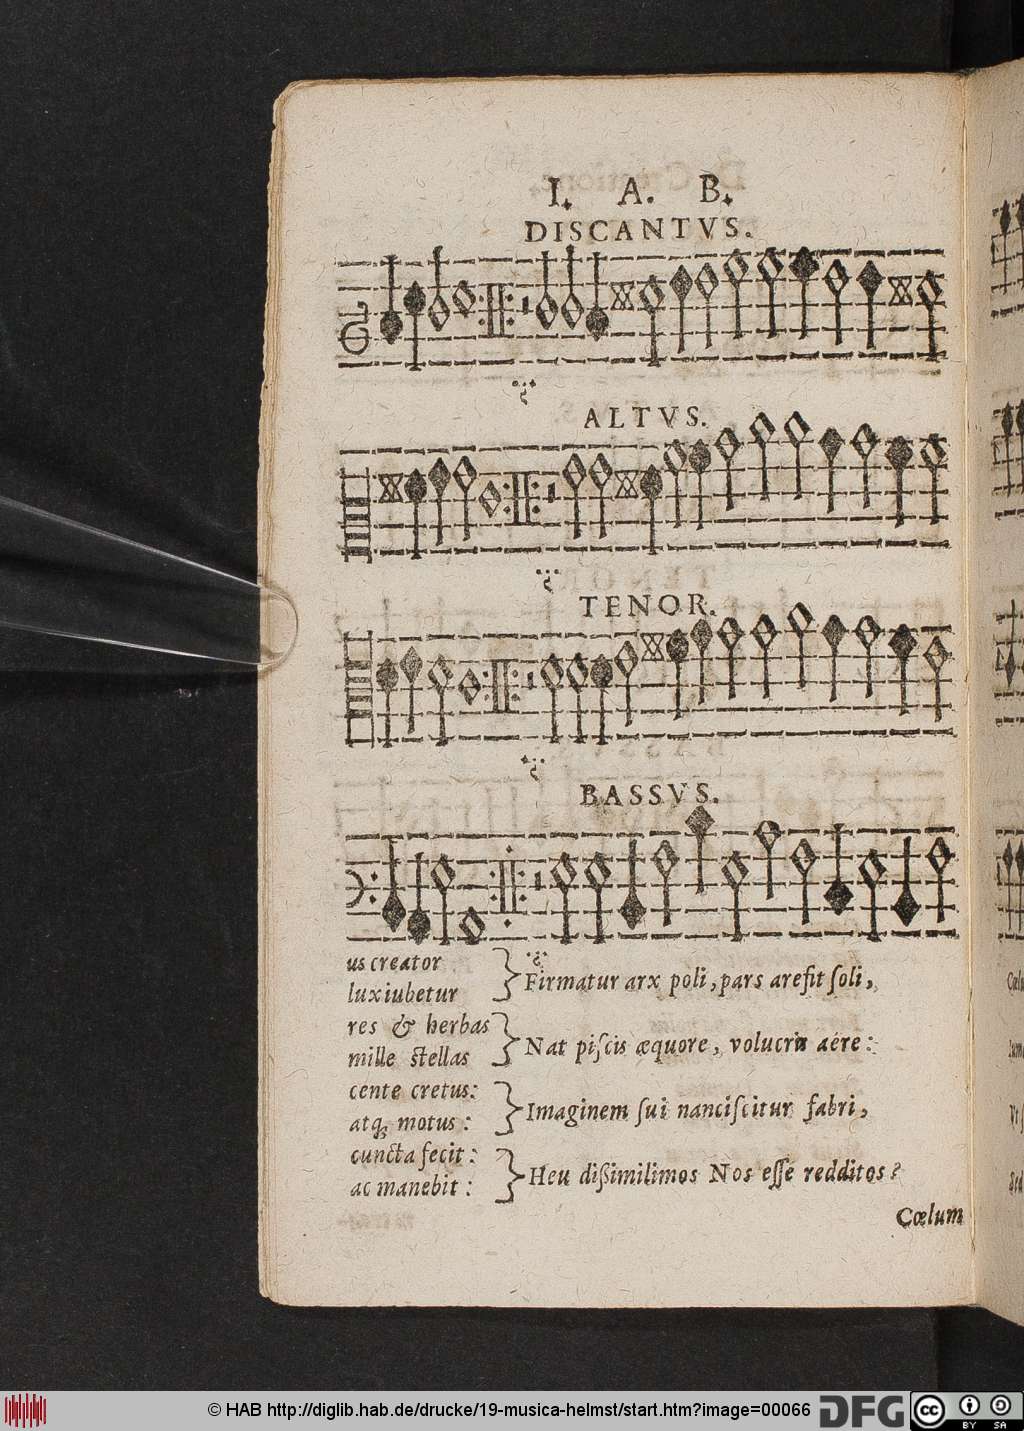 I. A. B.
DISCANTVS.
ALTVS.
TENOR.
BASSVS.
us creator
lux iubetur
} Firmatur arx poli, pars arefit ſoli,
res & herbas
mille ſtellas
} Nat piſcis æquore, volucris aëre:
cente cretus:
atq; motus:
} Imaginem ſui nanciſcitur fabri,
cuncta fecit:
ac manebit:
} Heu dißimilimos Nos eſſe redditos?
Cœlum
© HAB http://diglib.hab.de/drucke/19-musica-helmst/start.htm?image=00066
DFG
cc
BY SA